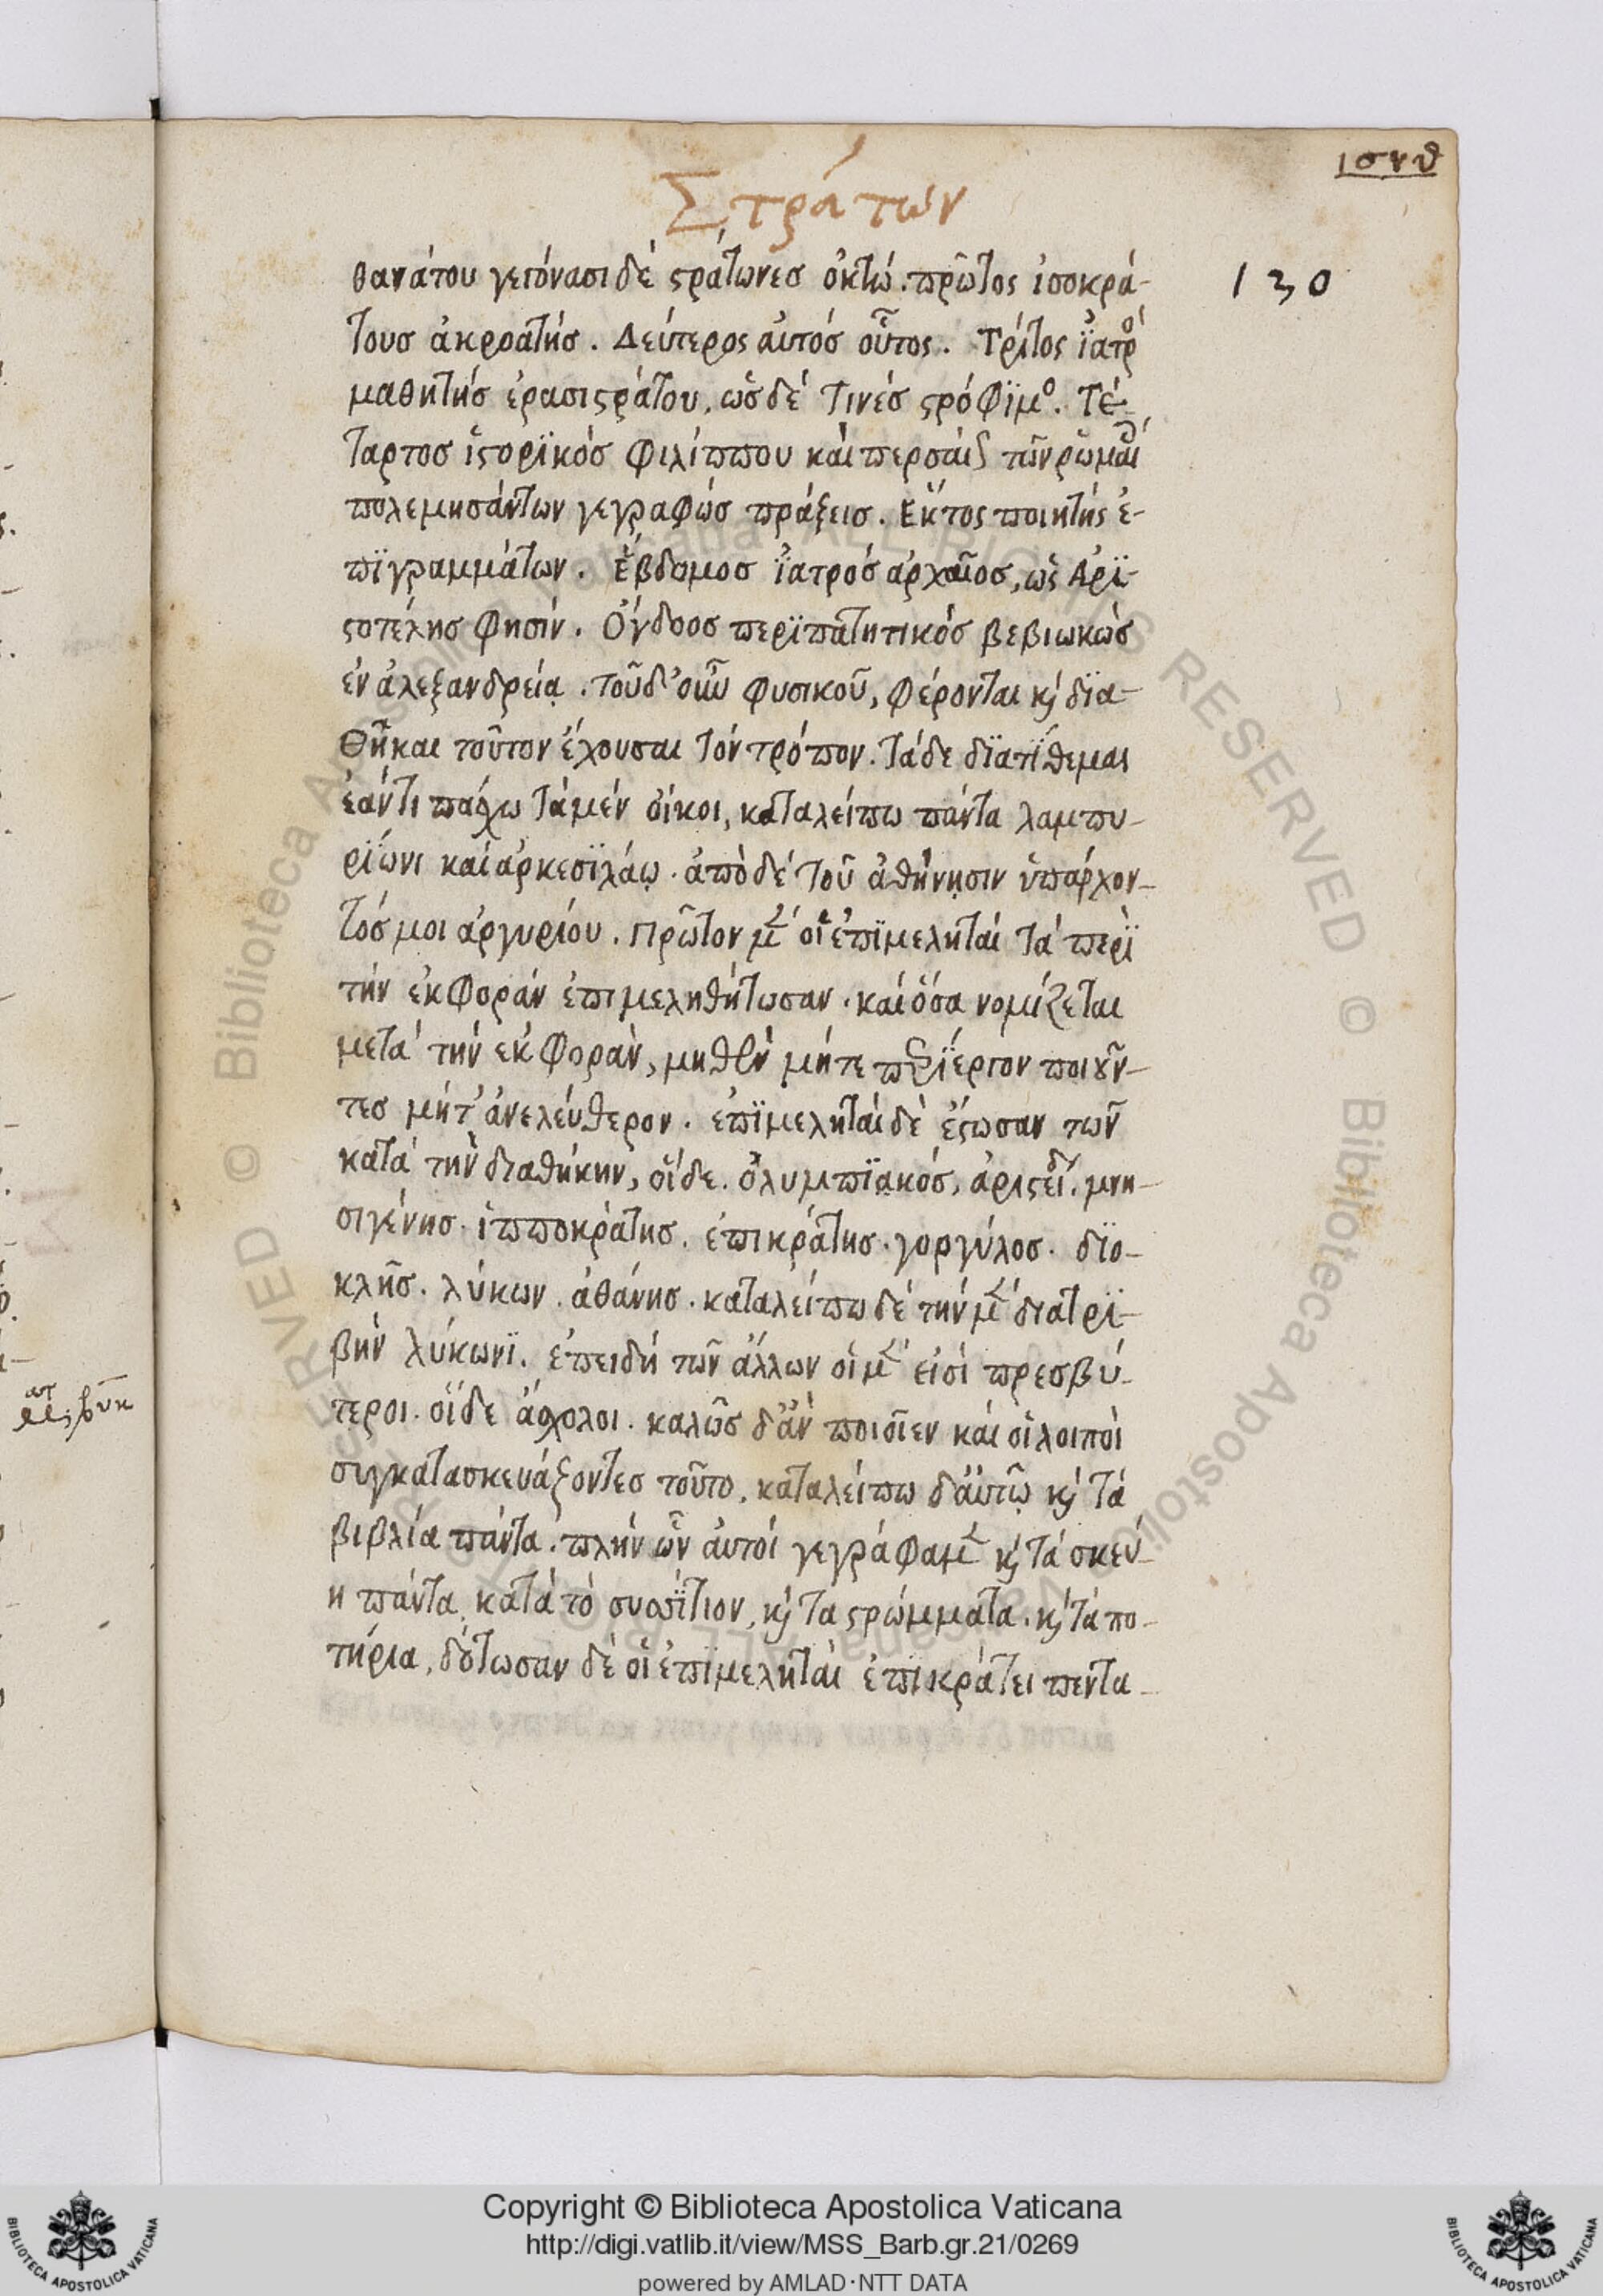 ισνθ
Στράτων
130
θανάτου γεγόνασι δέ ϛράτωνεσ ὀκτώ. πρῶτος ἰσοκρά-
τουσ ἀκροατήσ. Δεύτερος αὐτόσ οὗτος. Τρίτος ἰατρό
μαθητήσ ἐρασιϛράτου, ὡσ δέ τινέσ ϛρόφϊμο. Τέ-
ταρτοσ ἱϛορϊκόσ φιλίππου καὶ περσαί τῶν ῥωμαί
πολεμησάντων γεγραφώσ πράξεισ. Εκτος ποιητής ἐ-
πϊγραμμάτων. ἕβδομοσ ἰατρόσ ἀρχαῖοσ, ὡς Αρϊ-
ϛοτέλησ φησίν. Ὄγδοοσ περϊπατητικόσ βεβιωκώσ
ἐν ἀλεξανδρείᾳ. τοῦ δ' οὖν φυσικοῦ, φέρονται κ δϊα-
θῆκαι τοῦτον ἔχουσαι τόν τρόπον. τάδε δϊατίθεμαι
ἐάν τι πάσχω τά μέν οἴκοι, καταλείπω πάντα λαμπυ-
ρϊωνι καί ἀρκεσϊλάῳ. ἀπὸ δέ τοῦ ἀθήνησιν ὑπάρχον-
τόσ μοι ἀργυρίου. πρῶτον μ οἱ ἐπϊμεληταί τά περϊ
τήν ἐκφοράν ἐπιμεληθήτωσαν. καί ὅσα νομίζεται
μετά τήν ἐκφοράν, μηθέν μήτε περϊέργον ποιȣν-
τεσ μήτ' ἀνελεύθερον. ἐπϊμεληταί δὲ ἔϛωσαν τῶν
κατά τήν διαθήκην, οἵδε. ὀλυμπϊακόσ, ἀριϛείδ. μνη-
σιγένησ. ἱπποκράτησ. ἐπικράτησ. γοργύλοσ. δϊο-
κλῆσ. λύκων. ἀθάνησ. καταλείπω δέ τήν μ διατρϊ-
βήν λύκωνϊ. ἐπειδή τῶν ἄλλων οἱ μ εἰσί πρεσβύ-
τεροι. οἵδε ἄσχολοι. καλῶσ δ' ἄν ποιοῖεν καί οἱ λοιποί
συγκατασκευάζοντεσ τοῦτο. καταλείπω δ' αὐτῷ κ τά
βιβλία πάντα. πλήν ὧν αὐτοί γεγράφαμ κ τά σκεύ-
η πάντα, κατά τό συσσϊτιον, κ τα ϛρώμματα. κ τά πο-
τήρια, δότωσαν δέ οἱ ἐπϊμεληταί ἐπικράτει πεντα-
Copyright © Biblioteca Apostolica Vaticana
http://digi.vatlib.it/view/MSS_Barb.gr.21/0269
powered by AMLAD·NTT DATA